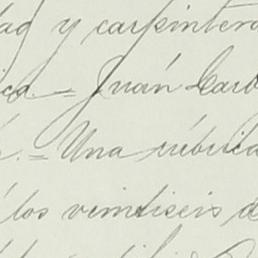 dad y carpintero
ica.= Juán Carb
.= Una rúbrica
á los veintiseis d